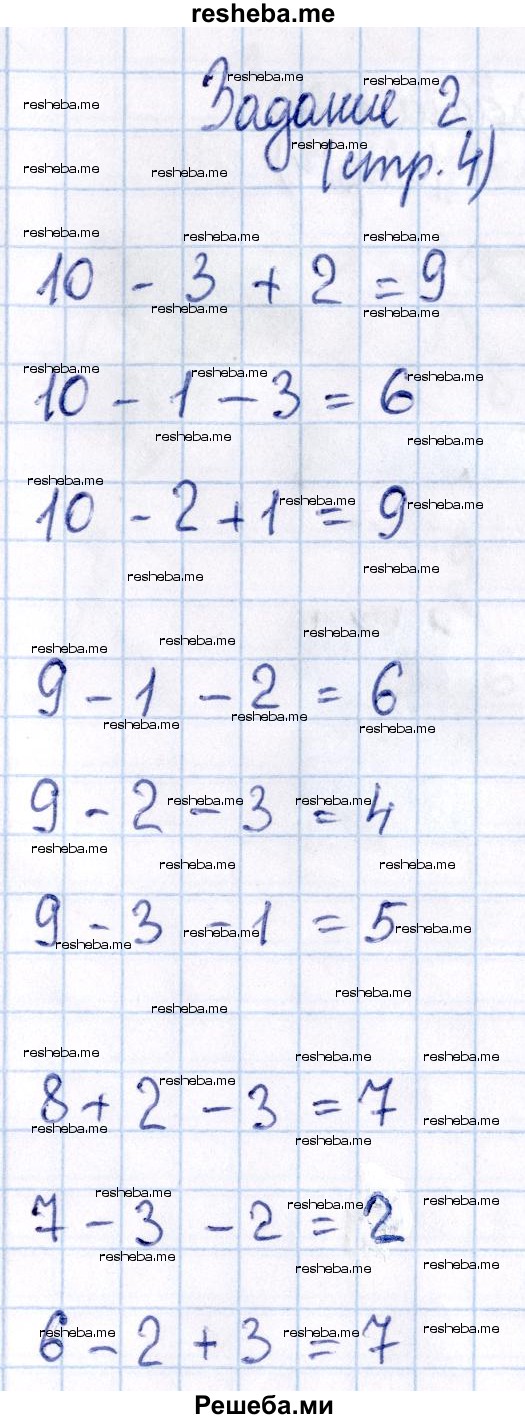 resheba.me
Задание 2
(стр. 4)
10 - 3 + 2 = 9
10 - 1 - 3 = 6
10 - 2 + 1 = 9
9 - 1 - 2 = 6
9 - 2 - 3 = 4
9 - 3 - 1 = 5
8 + 2 - 3 = 7
7 - 3 - 2 = 2
6 - 2 + 3 = 7
Решеба.ми